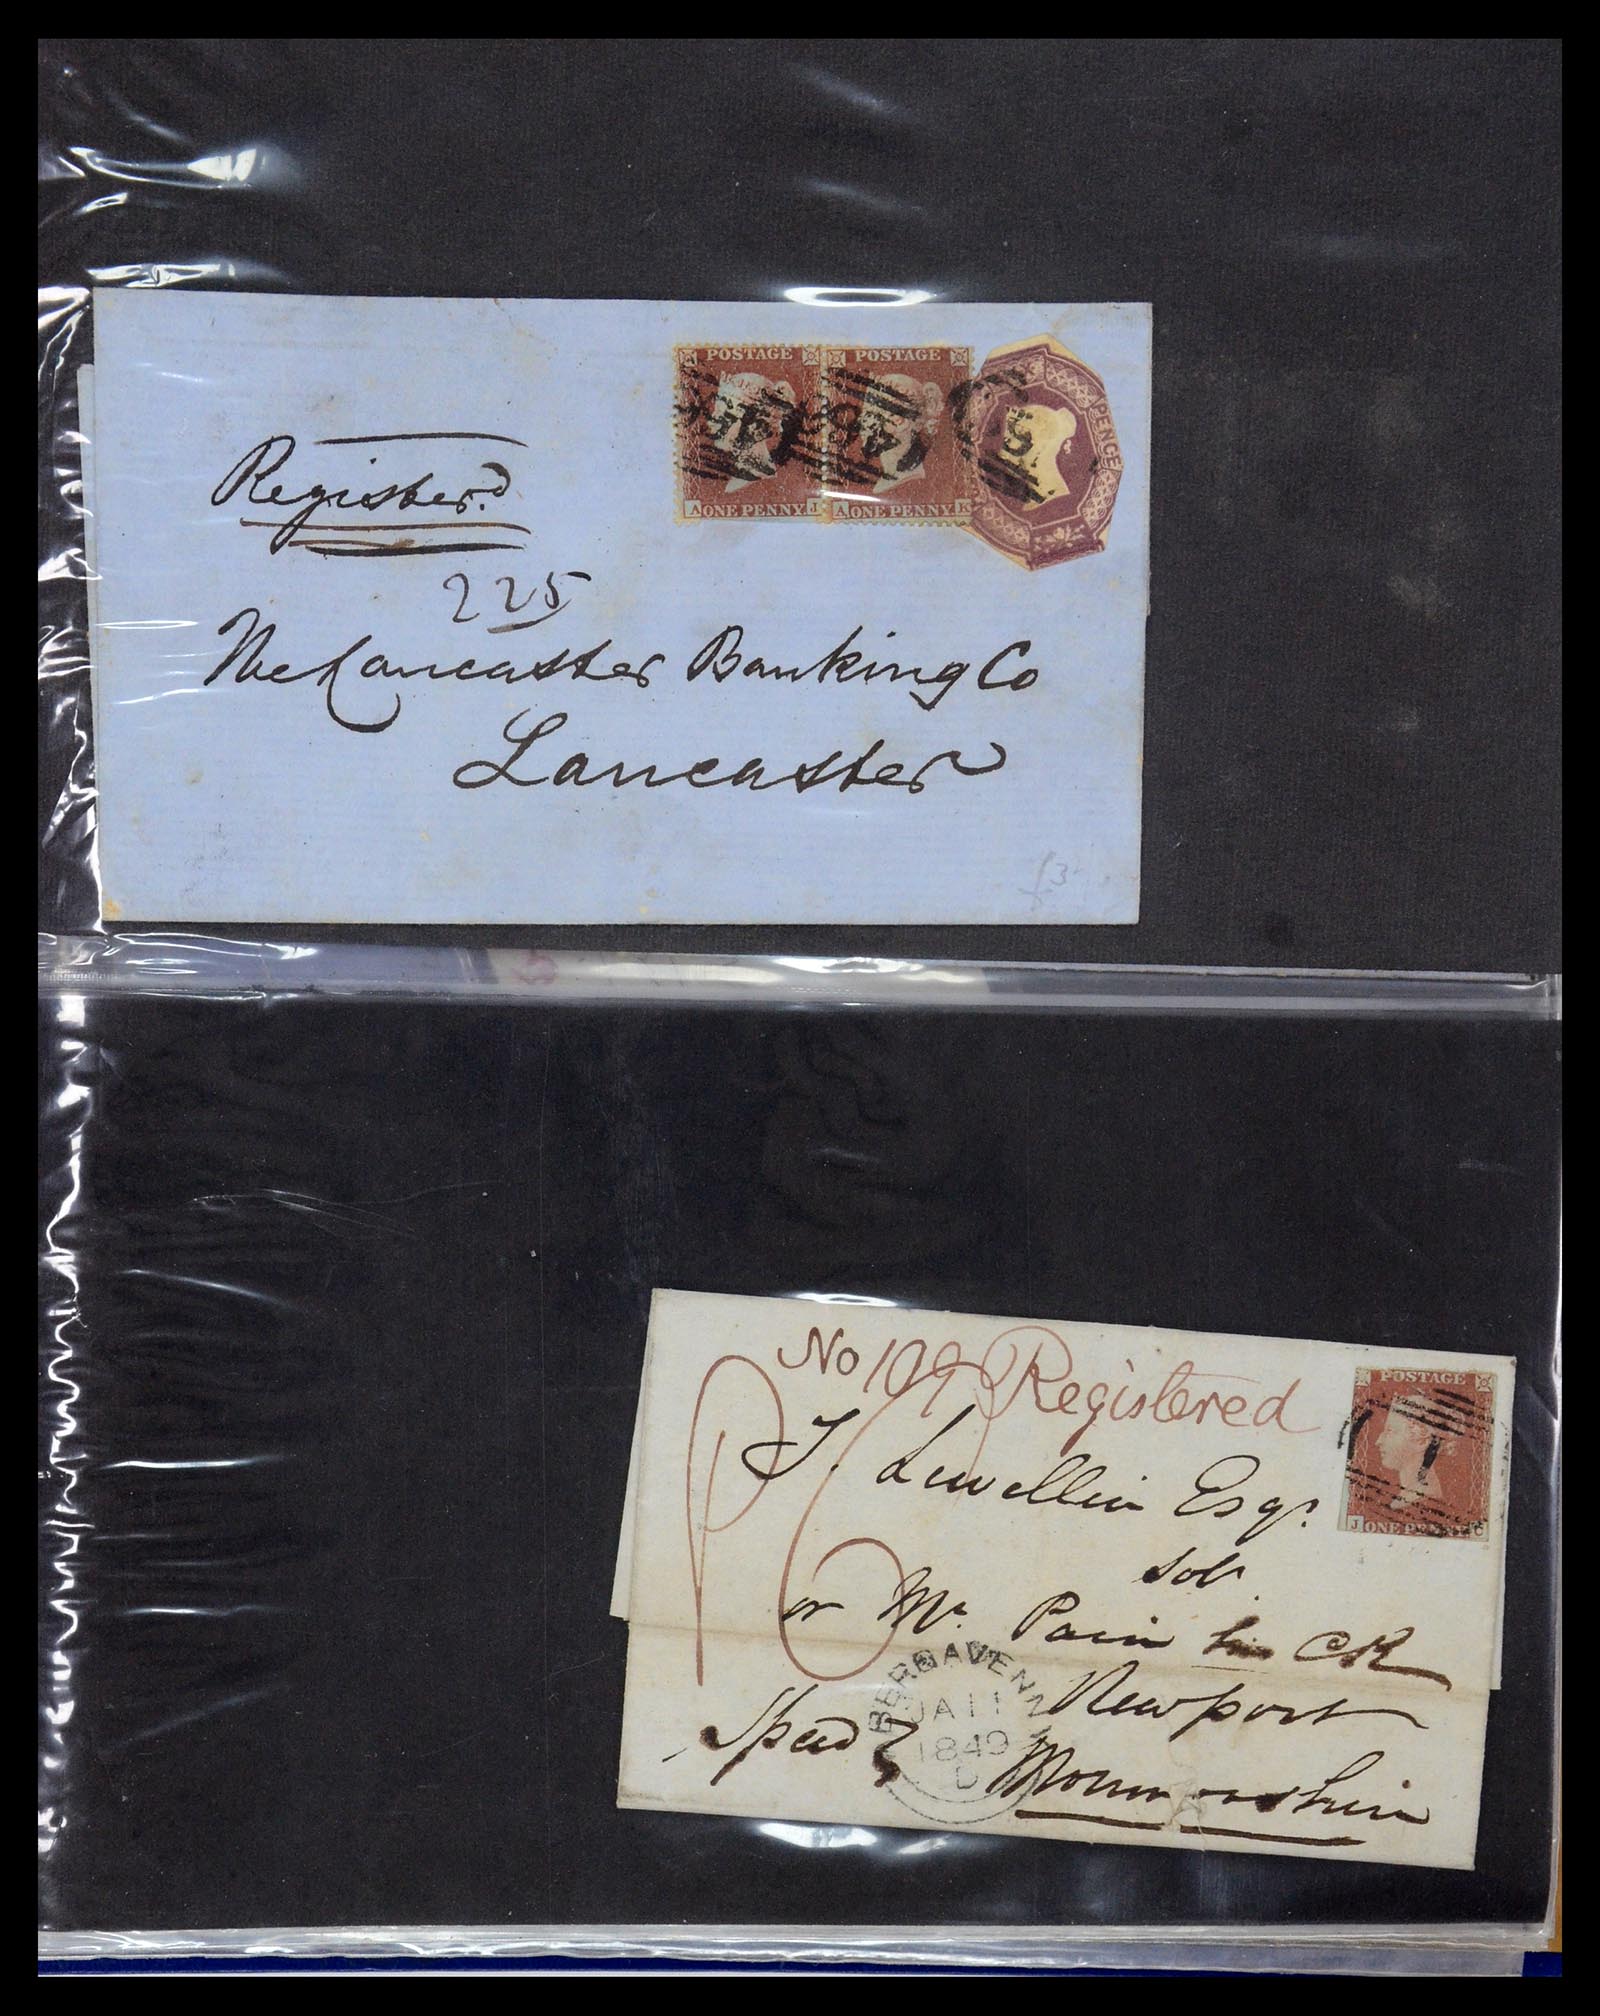 POSTAGE POSTAGE
PENCE
A ONE PENNY J A ONE PENNY K
Register.d
225
The Lancaster Banking Co
Lancaster
£3-
No 109 Registered
POSTAGE
1
J ONE PENNY C
J. Lewellin Esqr.
Solr.
or Mr. Pain
Newport
BERGAVENN
JA 11
1849
Speed
Monmouthshire